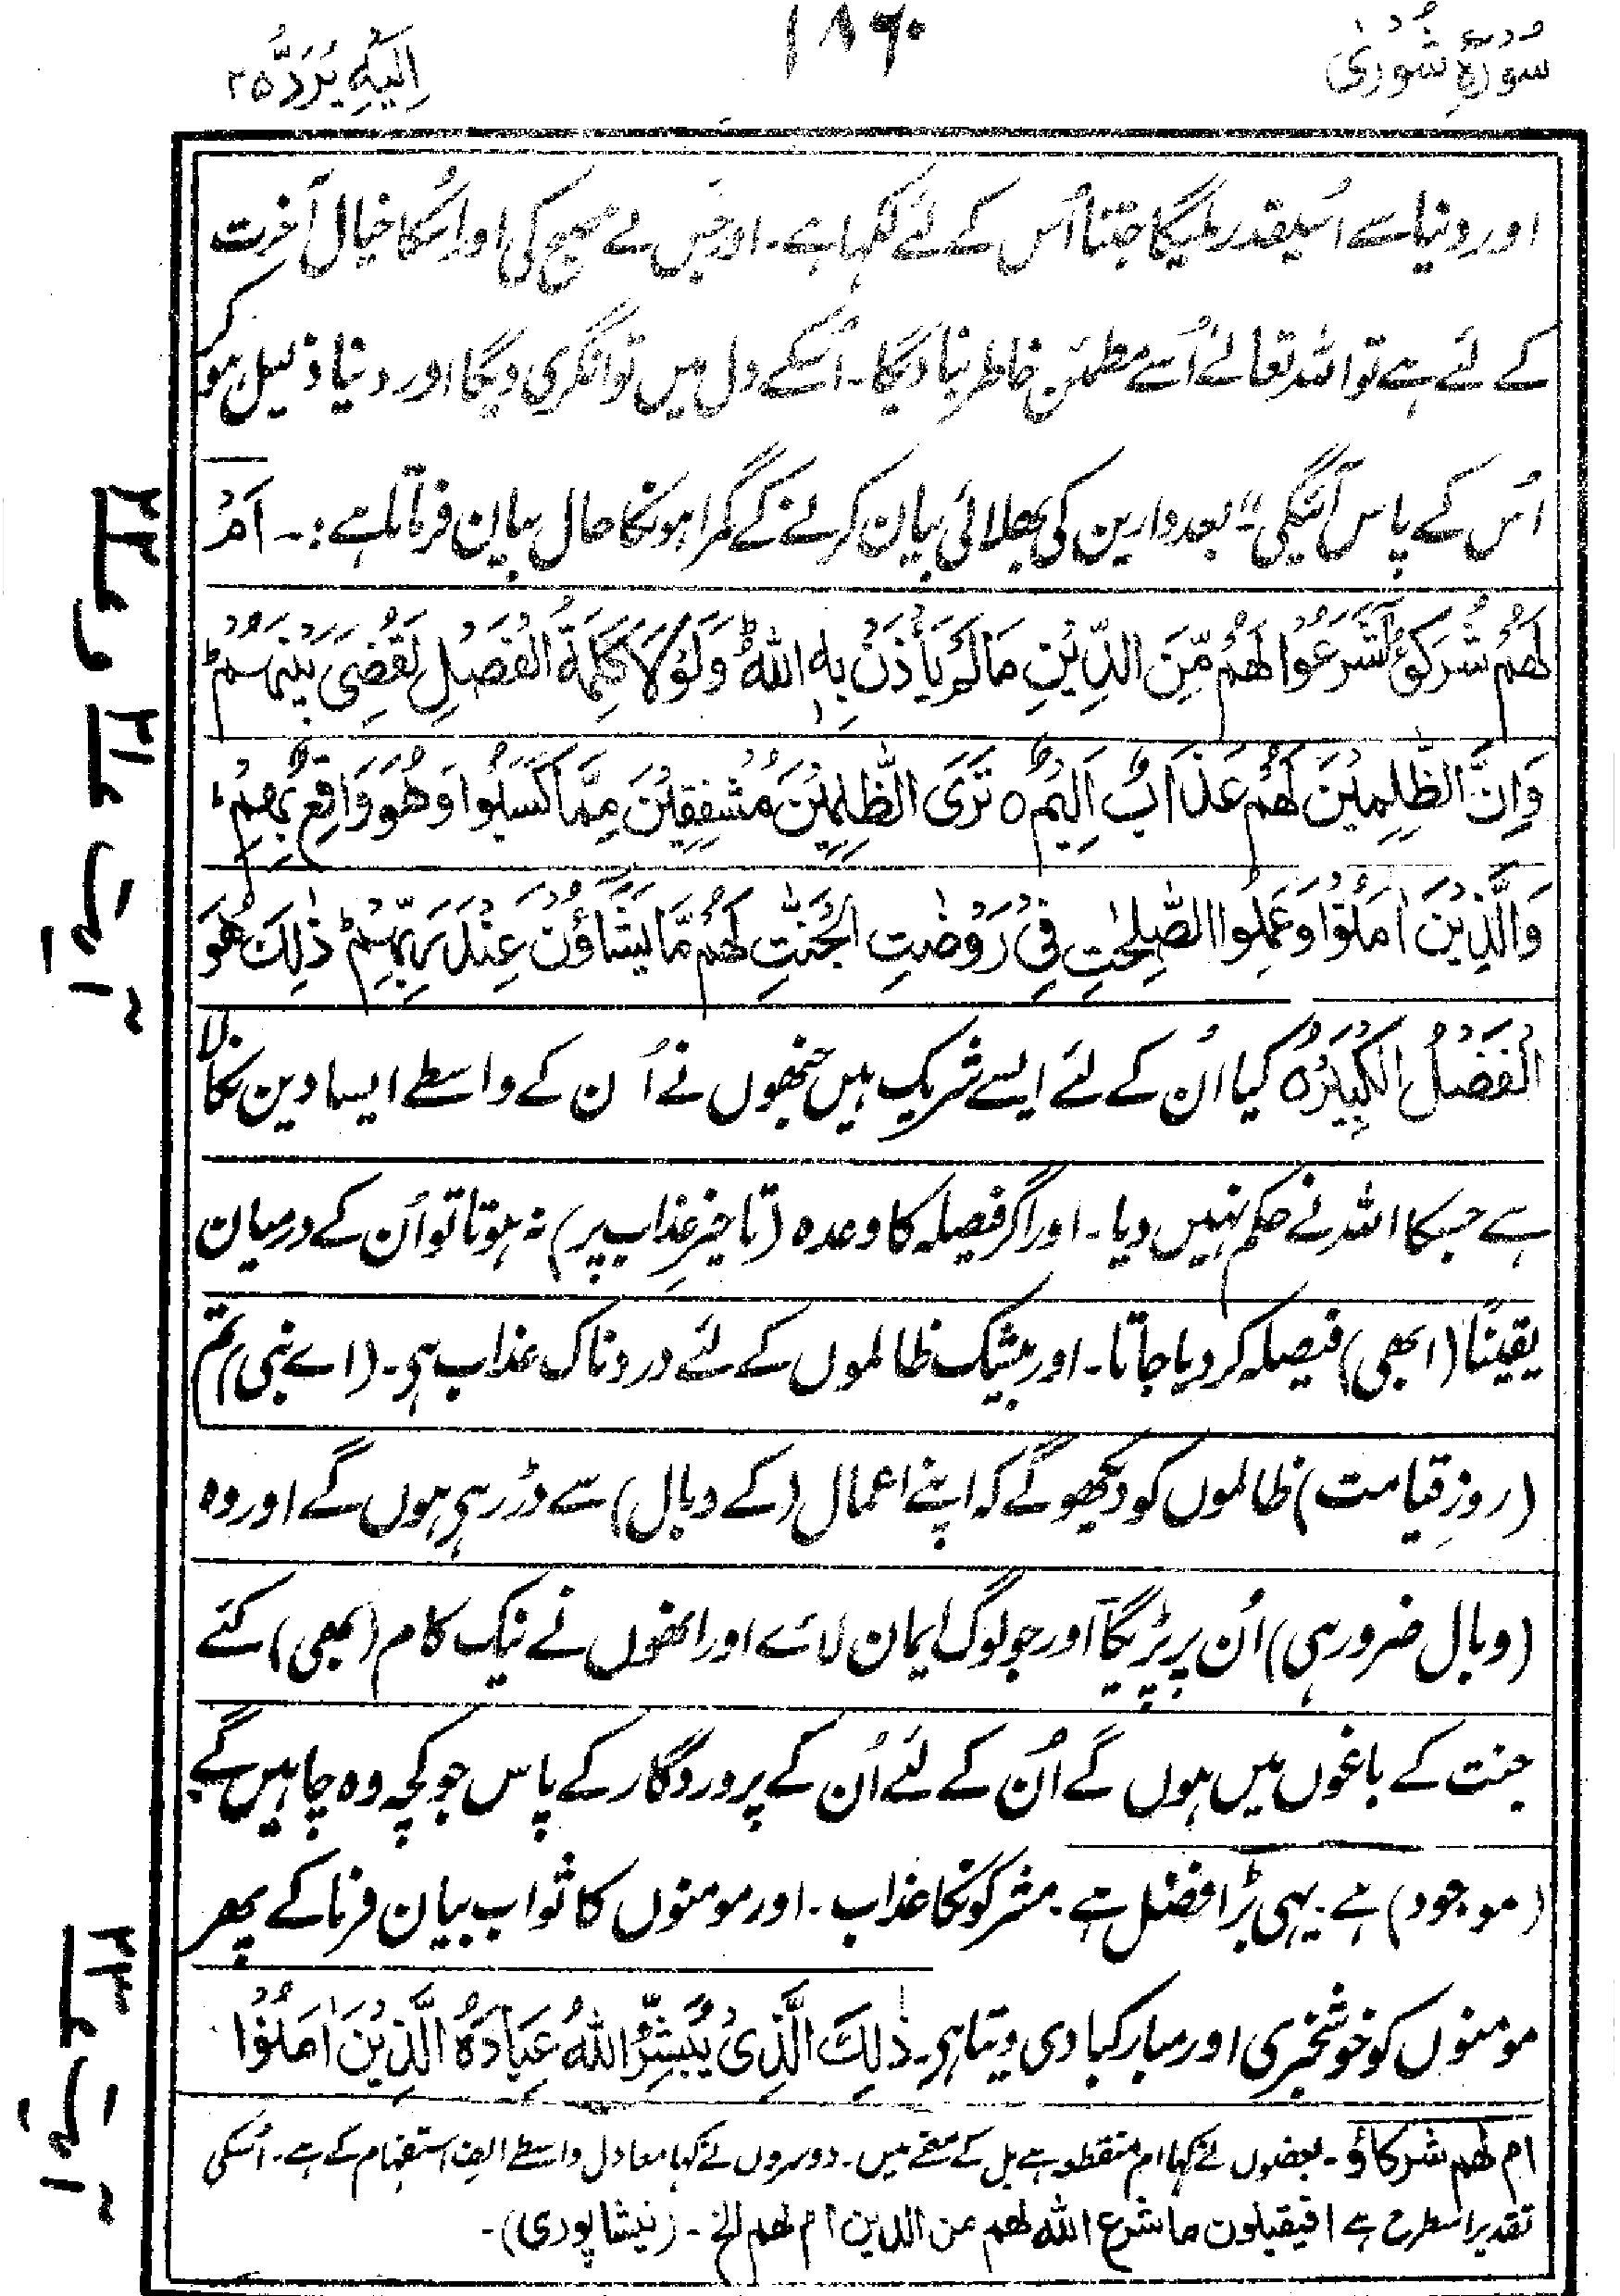 سورۃ شوریٰ
۱۸۶۰
اِلَیْہِ یُرَدُّ ۲۵
اور دنیا سے اسیقدر ملیگا جتنا اُس کے لئے لکھا ہے۔ اور جس نے صحیح کی اور اسکا خیال آخرت
کے لئے ہے تو اللہ تعالےٰ اُسے مطمئن خاطر بنا دیگا۔ اُسکے دل میں توانگری دیگا اور دنیا ذلیل ہو کر
اُس کے پاس آئیگی"۔ بعد دارین کی بھلائی بیان کرنے کے گمراہونکا حال بیان فرماتا ہے:۔ اَمْ
لَهُمْ شُرَكٰٓؤُا شَرَعُوْا لَهُمْ مِّنَ الدِّيْنِ مَا لَمْ يَأْذَنْۢ بِهِ اللّٰهُ ؕ وَلَوْلَا كَلِمَةُ الْفَصْلِ لَقُضِيَ بَيْنَهُمْ ؕ
وَاِنَّ الظّٰلِمِيْنَ لَهُمْ عَذَابٌ اَلِيْمٌ ○ تَرَى الظّٰلِمِيْنَ مُشْفِقِيْنَ مِمَّا كَسَبُوْا وَهُوَ وَاقِعٌۢ بِهِمْ ؕ
وَالَّذِيْنَ اٰمَنُوْا وَعَمِلُوا الصّٰلِحٰتِ فِيْ رَوْضٰتِ الْجَنّٰتِ لَهُمْ مَّا يَشَآؤُنَ عِنْدَ رَبِّهِمْ ؕ ذٰلِكَ هُوَ
الْفَضْلُ الْكَبِيْرُ ○ کیا اُن کے لئے ایسے شریک ہیں جنھوں نے اُن کے واسطے ایسا دین نکالا
ہے جسکا اللہ نے حکم نہیں دیا۔ اور اگر فیصلہ کا وعدہ (تاخیرِ عذاب پر) نہ ہوتا تو اُن کے درمیان
یقینًا (ابھی) فیصلہ کر دیا جاتا۔ اور بیشک ظالموں کے لئے دردناک عذاب ہی۔ (اے نبی) تم
(روزِ قیامت) ظالموں کو دیکھو گے کہ اپنے اعمال (کے وبال) سے ڈر رہی ہوں گے اور وہ
(وبال ضرور ہی) اُن پر پڑیگا اور جو لوگ ایمان لائے اور انھوں نے نیک کام (بھی) کئے
جنت کے باغوں میں ہوں گے اُن کے لئے اُن کے پروردگار کے پاس جو کچھ وہ چاہیں گے
(موجود) ہے۔ یہی بڑا فضل ہے۔ مشرکونکا عذاب۔ اور مومنوں کا ثواب بیان فرما کے پھر
مومنوں کو خوشخبری اور مبارکبادی دیتا ہی۔ ذٰلِكَ الَّذِيْ يُبَشِّرُ اللّٰهُ عِبَادَهُ الَّذِيْنَ اٰمَنُوْا
ام لھم شرکاؤ۔ بعضوں نے کہا ام منقطعہ ہے بل کے معنے میں۔ دوسروں نے کہا معادل واسطے الف استفہام کے ہے۔ اُسکی
تقدیر اسطرح ہے افیقبلون ما شرع اللہ لھم من الدین ام لھم الخ۔ (نیشاپوری)۔
آیت ۲۱ و ۲۲
آیت ۲۳